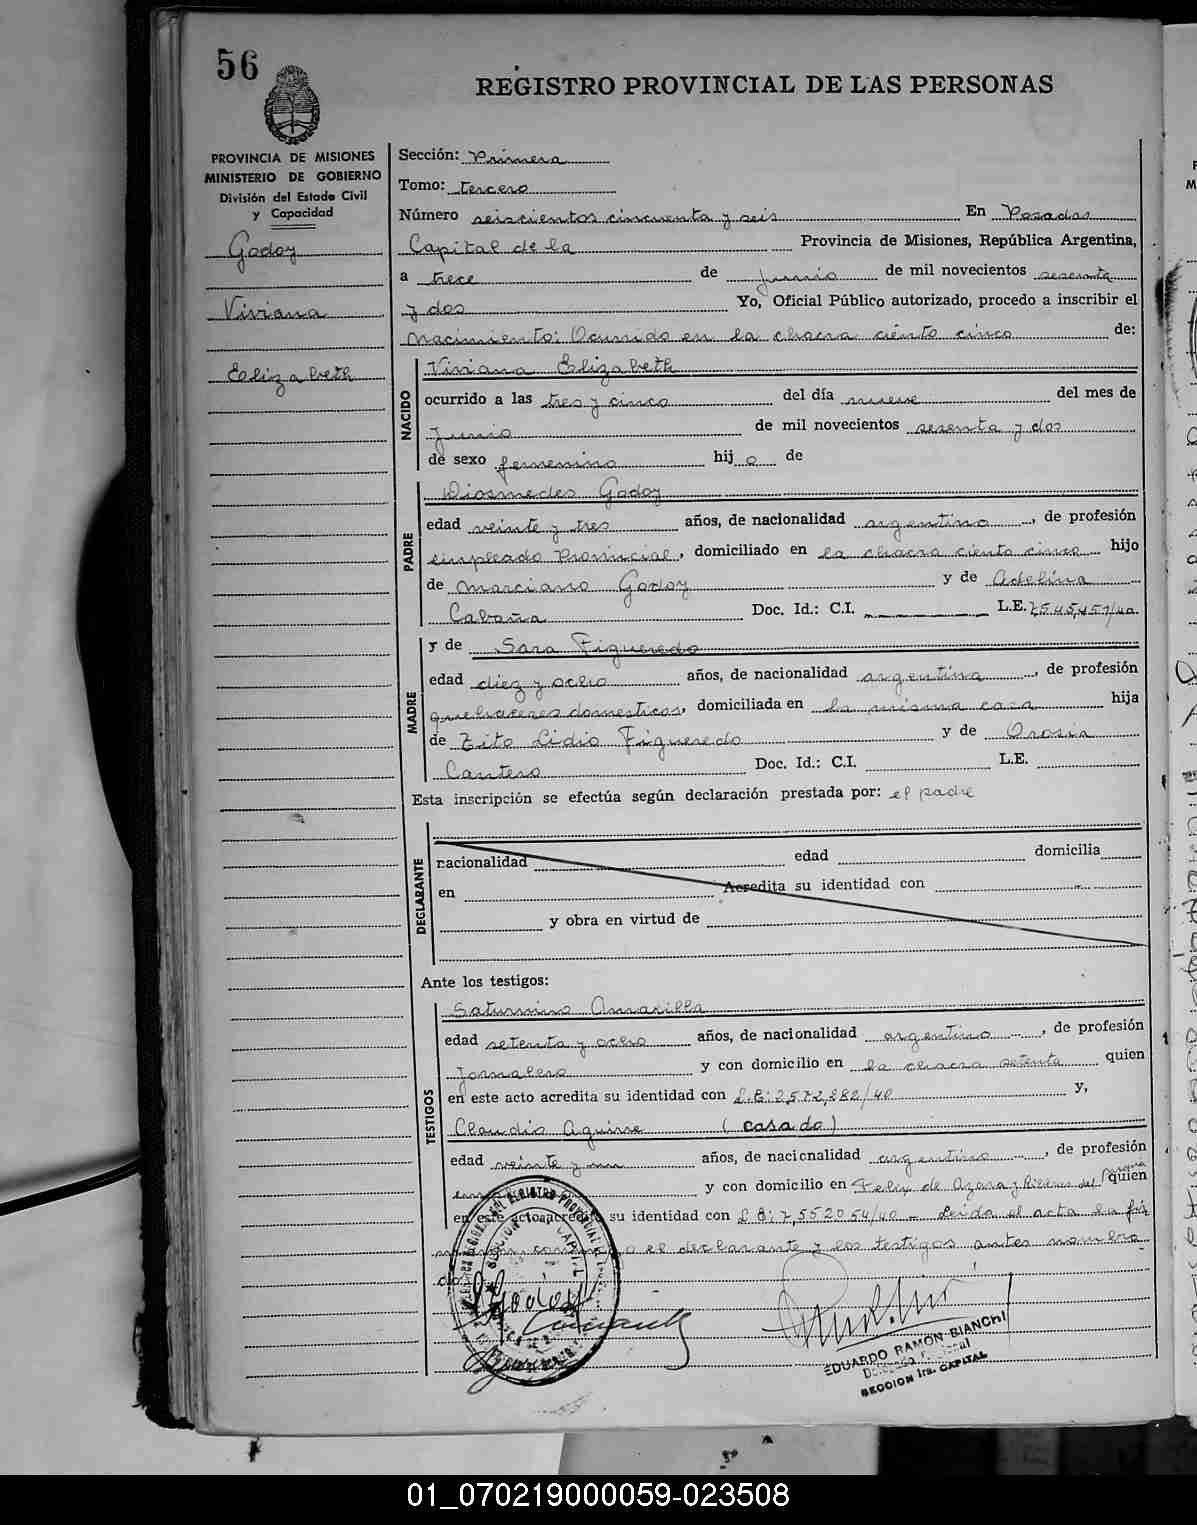 56
REGISTRO PROVINCIAL DE LAS PERSONAS
PROVINCIA DE MISIONES
MINISTERIO DE GOBIERNO
División del Estado Civil
y Capacidad
Godoy
Viviana
Elizabeth
Sección: Primera
Tomo: tercero
Número seiscientos cincuenta y seis En Posadas
Capital de la Provincia de Misiones, República Argentina,
a trece de junio de mil novecientos sesenta
y dos Yo, Oficial Público autorizado, procedo a inscribir el
nacimiento: Ocurrido en la chacra ciento cinco de:
NACIDO
Viviana Elizabeth
ocurrido a las tres y cinco del día nueve del mes de
junio de mil novecientos sesenta y dos
de sexo femenino hij a de
PADRE
Diosmedes Godoy
edad veinte y tres años, de nacionalidad argentino, de profesión
empleado Provincial, domiciliado en la chacra ciento cinco hijo
de Marciano Godoy y de Adelina
Cabaña Doc. Id.: C.I. L.E. 7,545,457/40
MADRE
y de Sara Figueredo
edad diez y ocho años, de nacionalidad argentina, de profesión
quehaceres domesticos, domiciliada en la misma casa hija
de Tito Lidio Figueredo y de Orosia
Cantero Doc. Id.: C.I. L.E.
Esta inscripción se efectúa según declaración prestada por: el padre
DECLARANTE
nacionalidad edad domicilia
en Acredita su identidad con
y obra en virtud de
Ante los testigos:
TESTIGOS
Saturnino Amarilla
edad setenta y ocho años, de nacionalidad argentino, de profesión
Jornalero y con domicilio en la chacra setenta quien
en este acto acredita su identidad con L.E: 2,572,882/40 y,
Claudio Aguirre (casado)
edad veinte y un años, de nacionalidad argentino, de profesión
y con domicilio en Felix de Azara y quien
en este acto acredita su identidad con L.E: 7,552054/40 - Leida el acta la fir
man conmigo el declarante y los testigos antes nombra
dos
Godoy
EDUARDO RAMON BIANCHI
SECCION 1ra. CAPITAL
01_070219000059-023508